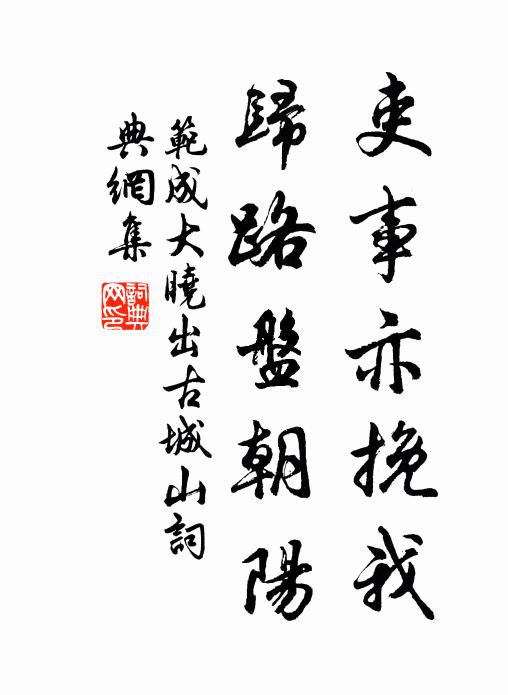 吏事亦挽我
歸路盤朝陽
範成大曉出古城山詞
典網集
詞典網印